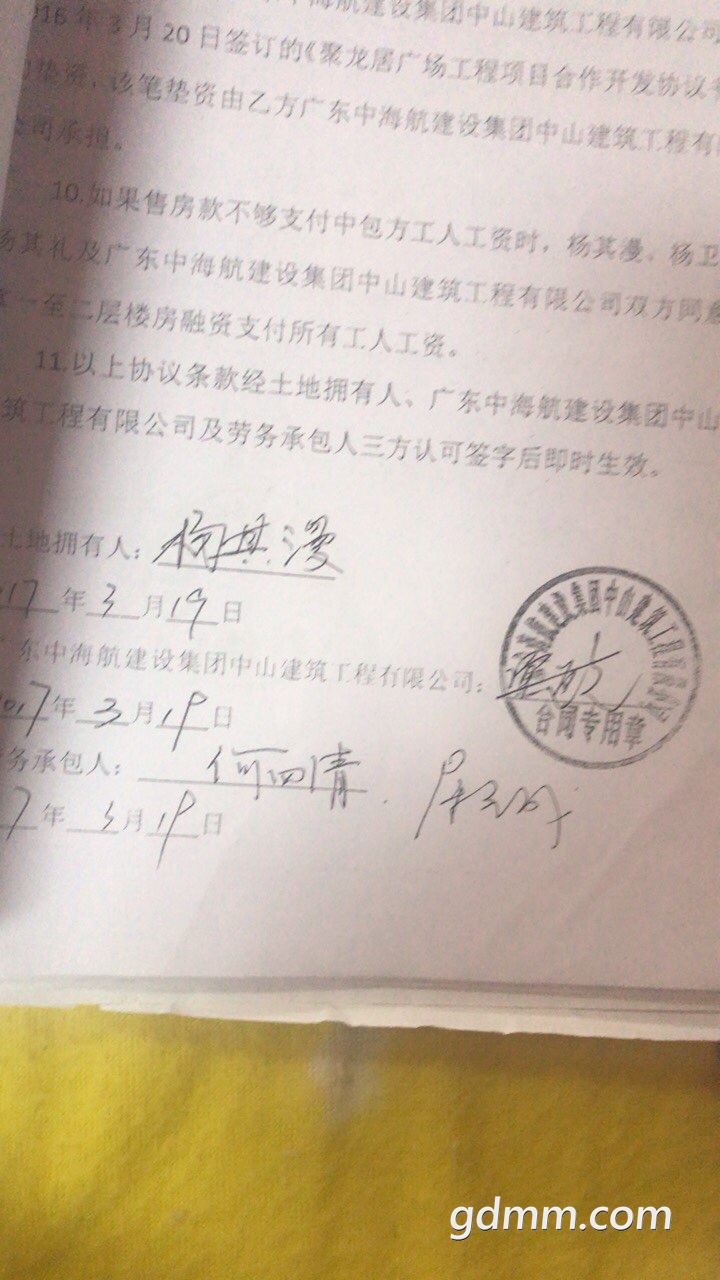 中海航建设集团中山建筑工程有限公司
16年3月20日签订的《聚龙居广场工程项目合作开发协议
垫资，该笔垫资由乙方广东中海航建设集团中山建筑工程有
公司承担。
10.如果售房款不够支付中包方工人工资时，杨其漫、杨卫
杨其礼及广东中海航建设集团中山建筑工程有限公司双方同意
一至二层楼房融资支付所有工人工资。
11.以上协议条款经土地拥有人、广东中海航建设集团中山
筑工程有限公司及劳务承包人三方认可签字后即时生效。
土地拥有人：杨其漫
2017年3月19日
广东中海航建设集团中山建筑工程有限公司：
2017年3月19日
务承包人：何四清
7年3月19日
集团中山建筑工程有限公司
合同专用章
gdmm.com